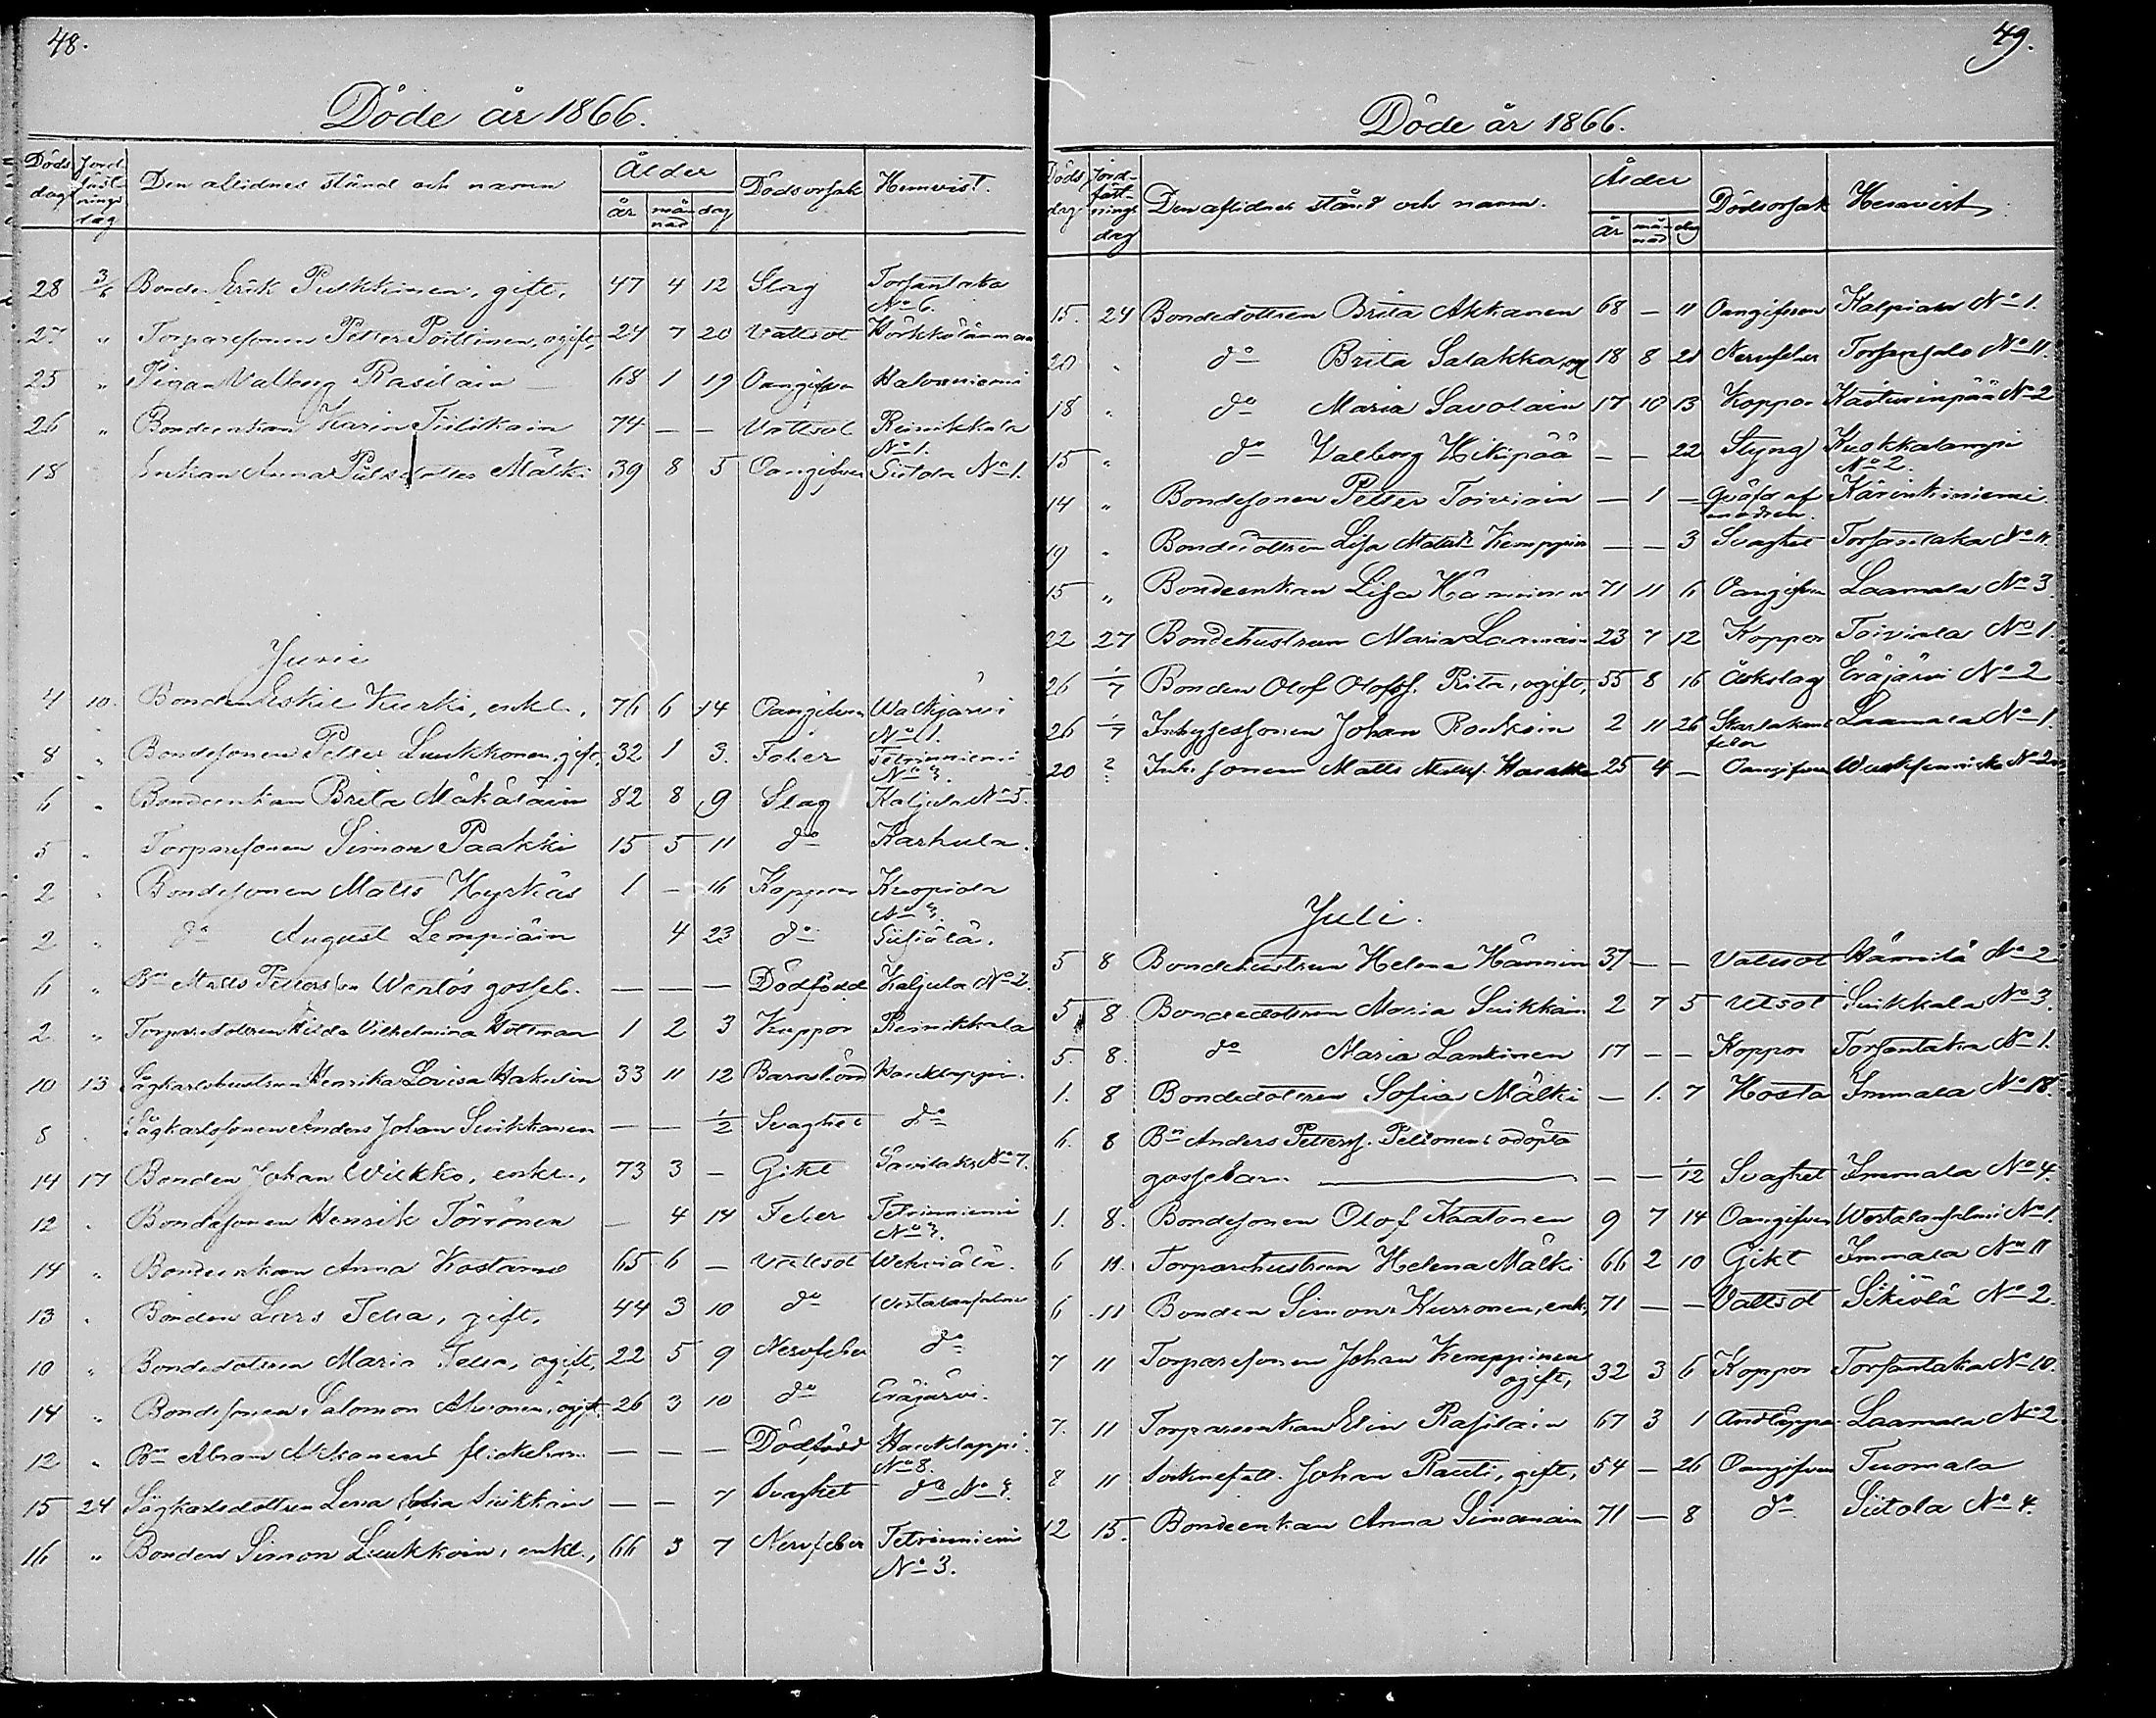 48.
Döde år 1866.
Döds dag Jordfästnings dag Den aflidnes stånd och namn Ålder år månad dag Dödsorsak Hemvist.
28 3/6 Bonden Erik Pukkinen, gift, 47 4 12 Slag Torsantaka No 6.
27 " Torparesonen Petter Pöllinen, ogift, 24 7 20 Vattsot
25 " Pigan Valborg Rasilain — 68 1 19 Oangifven Halvaniemi
26 " Bondeenkan Karin Tiilikain 74 — — Vattsot Reinikkala No 1.
18 Enkan Anna Mälki 39 8 5 Oangifven Siitola No 1.
Junii
4 10. Bonden Eskil Kurki, enkl., 76 6 14 Oangifven Walkjärvi No 1.
8 " Bondesonen Petter Luukkonen, gift, 32 1 3. Feber Tetriniemi No 3.
6 " Bondeenkan Brita Mäkäläin 82 8 9 Slag Kaljula No 5.
5 " Torparesonen Simon Paakki 15 5 11 do Karhula.
2 " Bondesonen Matts Hyrkäs 1 — 16 Koppor
2 " do August Lempiäin 4 23 do
6 " Bn Matts Pettersson Wentos gosseb. — — — Dödfödd Kaljula No 2.
2 " Torparedottren Hilda Vilhelmina Hollman 1 2 3 Koppor Reinikkala
10 13 Sågkarlshustrun Henrika Lovisa Hakulin 33 11 12 Barnsbörd Haukkappi.
8 Sågkarlssonen Anders Johan Suikkanen — — 1/2 Svaghet do
14 17 Bonden Johan Wilkko, enkl., 73 3 — Gikt Savilaks No 7.
12 " Bondesonen Henrik Törrönen — 4 14 Feber Tetriniemi No 3.
14 " Bondeenkan Anna Kostamo 65 6 — Vattsot
13 " Bonden Lars Telia, gift, 44 3 10 do
10 " Bondedottren Maria Telia, ogift, 22 5 9 Nervfeber do
14 " Bondesonen Salomon Ahvonen, ogift, 26 3 10 do Eräjärvi.
12 " Bn Abram Akkanens flickebarn — — — Dödfödd Haukkappi No 8.
15 24 Sågkarlsdottren Lena Sofia Suikkain — — 7 Svaghet do No 3.
16 " Bonden Simon Luukkoin, enkl., 66 3 7 Nervfeber Tetriniemi No 3.
49.
Döde år 1866.
Döds dag Jordfästnings dag Den aflidnes stånd och namn. Ålder år månad dag Dödsorsak Hemvist
15. 24 Bondedottren Brita Akkanen 68 — 11 Oangifven No 1.
20 " do Brita Salakka, og 18 8 21 Nervfeber Torsansalo No 11.
18 " do Maria Savolain 17 10 13 Koppor No 2
15 " do Valborg Hikipää — — 22 Styng Kukkalampi No 2.
14 " Bondesonen Petter Toiviain — 1 — Qväfd af modren. Kärinkiniemi.
19 " Bondedottren Lisa Matsdr Kemppin — — 3 Svaghet Torsantaka No 11.
15 " Bondeenkan Lisa Hänninen 71 11 6 Oangifven Laamala No 3.
22 27 Bondehustrun Maria Laamain 23 7 12 Koppor Toiviala No 1.
26 1/7 Bonden Olof Olofs. Rita, ogift, 55 8 16 Åskslag Eräjärvi No 2
26 1/7 Inhysessonen Johan Ronkain 2 11 26 Skarlakans feber Laamala No 1.
20 ? Inh. sonen Matts Matss. Harakka 25 4 — Oangifven No 2
Juli.
5 8 Bondehustrun Helena Hännin 37 — — Vattsot Hämilä No 2
5 8 Bondedottren Maria Suikkain 2 7 5 Utsot Suikkala No 3.
5. 8. do Maria Lankinen 17 — — Koppor Torsantaka No 1.
1. 8 Bondedottren Sofia Mälki — 1. 7 Hosta Immala No 18.
6. 8 Bn Anders Petterss. Peltonens odöpta
gossebarn. — — — 1/12 Svaghet Immala No 4.
1. 8. Bondesonen Olof Kaatonen 9 7 14 Oangifven No 1.
6 11. Torparehustrun Helena Mälki 66 2 10 Gikt Immala No 11
6 11 Bonden Simon Kurronen, enkl, 71 — — Vattsot Sikiölä No 2.
7 11 Torparesonen Johan Kemppinen ogift, 32 3 6 Koppor Torsantaka No 10.
7. 11 Torpareenkan Elin Rasilain 67 3 1 Andtäppa Laamala No 2
8 11 Socknefatt. Johan Rauti, gift, 54 — 26 Oangifven Tuomala
12 15. Bondeenkan Anna Simonain 71 — 8 do Siitola No 4.